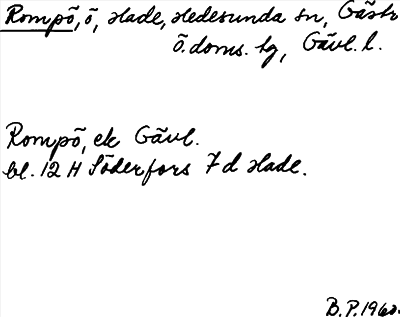 Rompö, ö, Hade, Hedesunda sn, Gästr
Ö.doms. hg, Gävl. l.
Rompö, ek Gävl.
bl. 12 H Söderfors 7 d Hade.
B.P. 1960.